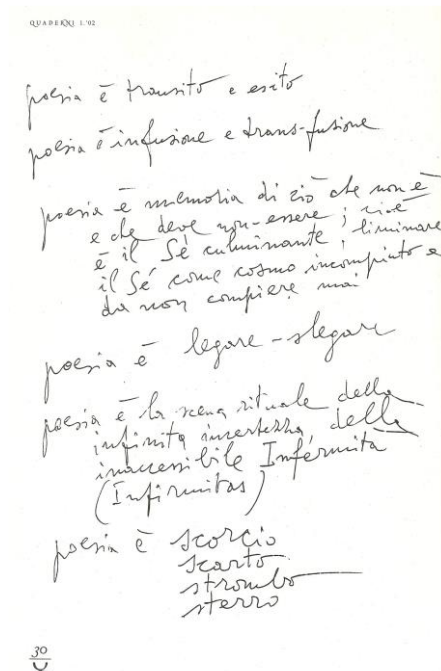 QUADERNI 1.'02
poesia è transito e esito
poesia è infusione e trans-fusione
poesia è memoria di ciò che non è
e che deve non-essere; cioè
è il Sé culminante, liminare
il Sé come cosmo incompiuto e
da non compiere mai
poesia è legare-slegare
poesia è la scena rituale della
infinita incertezza, della
inaccessibile Infermità
(Infirmitas)
poesia è scorcio
scarto
strombo
sterro
30